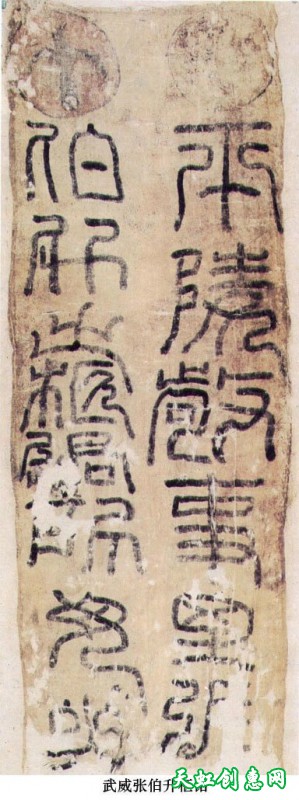 平陵敬事里張
伯升之柩過所毋哭
武威张伯升柩铭
天虹创意网